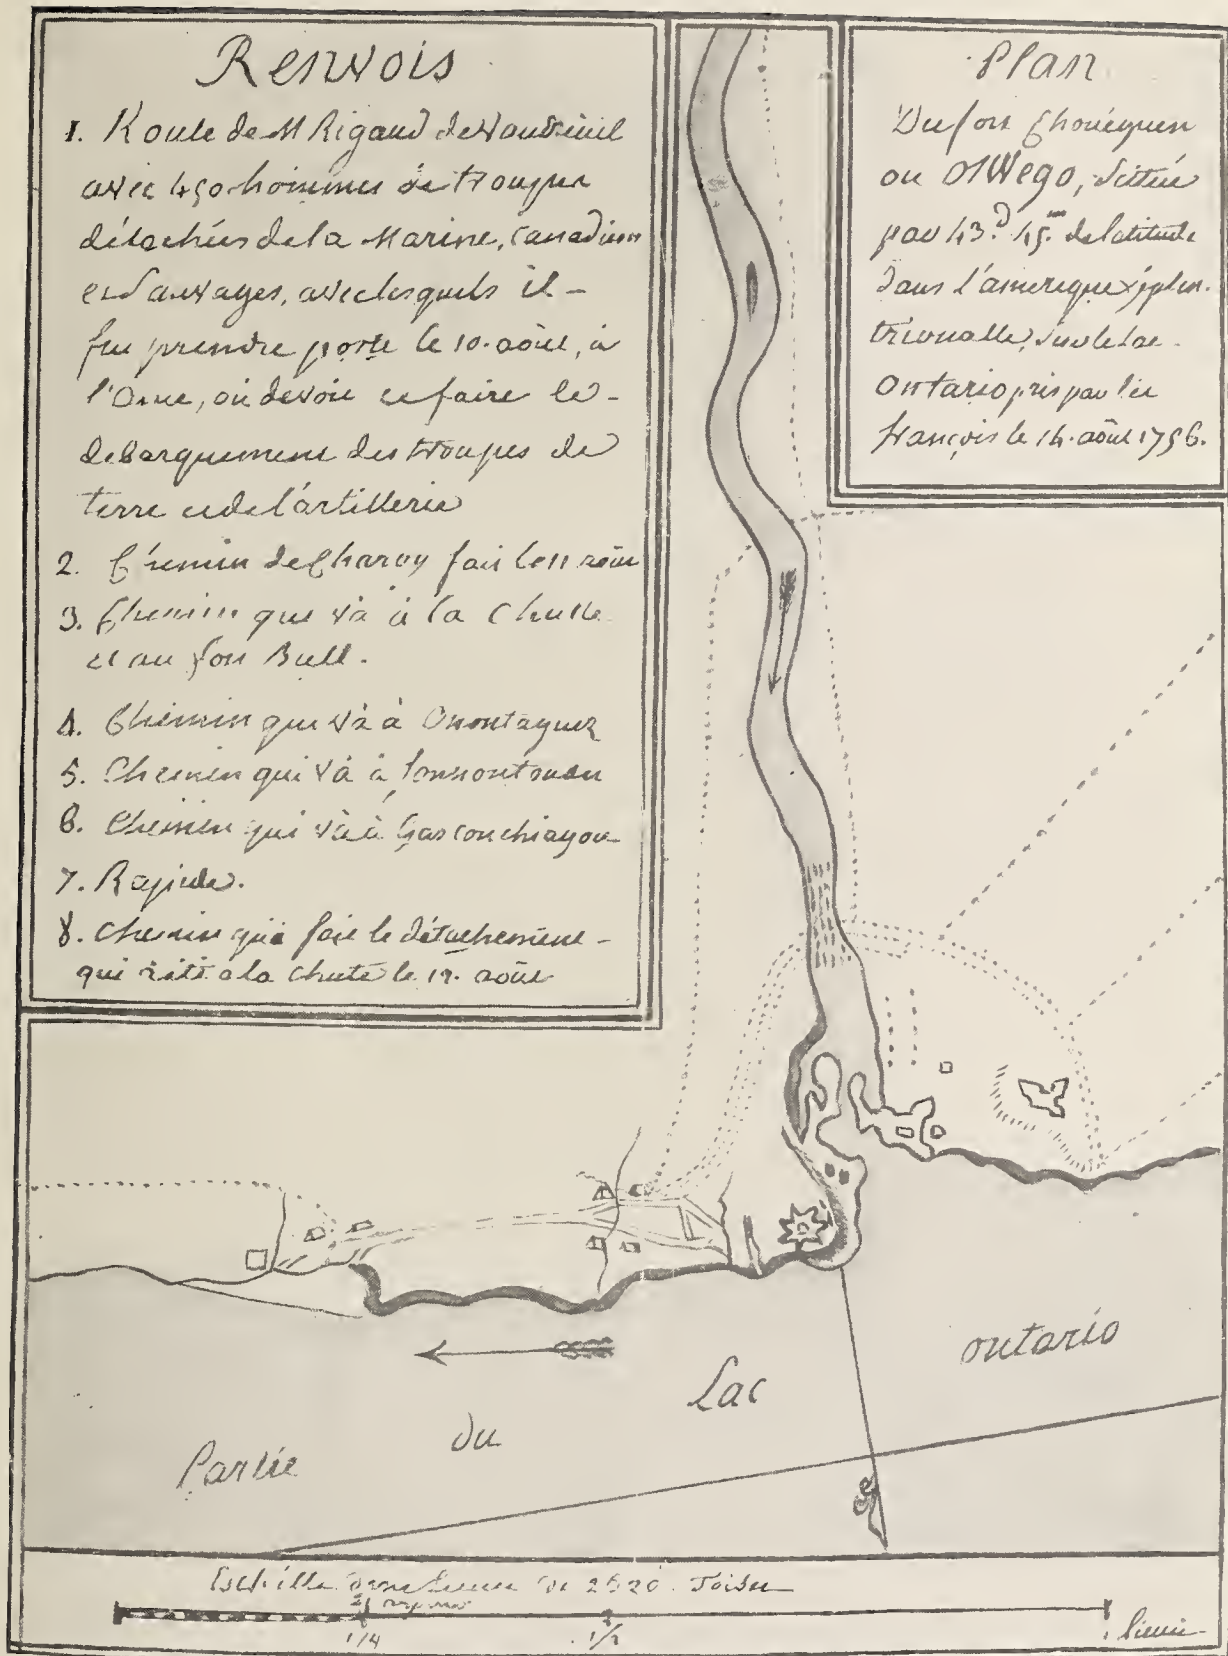 Renvois
1. Route de M Rigaud de Vaudreuil
avec 450 hommes de troupes
détachées de la Marine, Canadiens
et Sauvages, avec lesquels il
fut prendre poste le 10. août, à
l'Anse, où devoit ce faire le
debarquement des troupes de
terre et de l'artillerie
2. Chemin de Charoy fait le 11 août
3. Chemin que và à la Chutte
et au fort Bull.
4. Chemin qui và à Onontaguez
5. Chemin qui và à Sonnontouan
6. Chemin qui và à Gasconchiagou
7. Rapide.
8. Chemin que fait le détachement
qui a été a la Chute le 12. août
Plan
Du fort Chouéguen
ou OsWego, Sittué
par 43.d 45.m de latitude
dans l'amerique Septen-
trionalle, sur le Lac
Ontario pris par les
françois le 14. août 1756.
Partie du Lac ontario
Eschille d'une Lieue de 2520 Toises
1/4 1/2 1 lieue